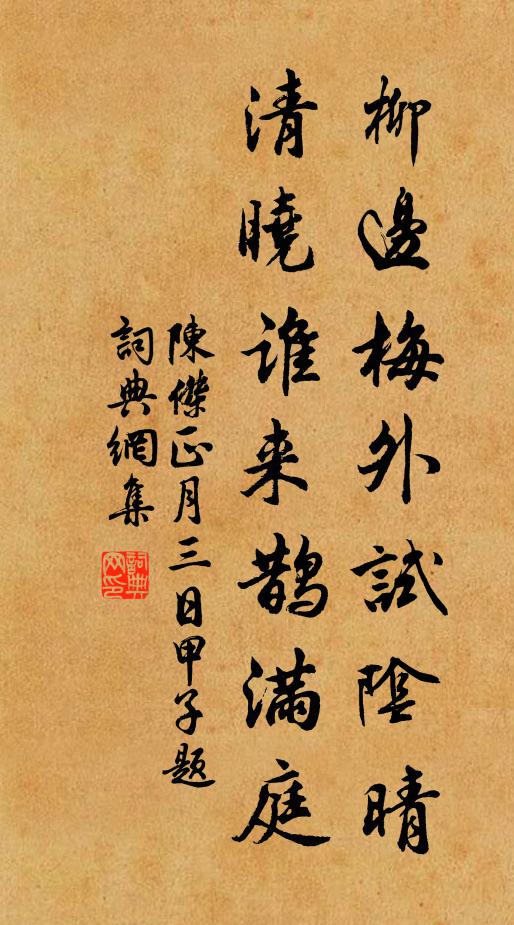 柳邊梅外試陰晴
清曉誰来鵲滿庭
陳傑正月三日甲子題
詞典網集
詞典
网印